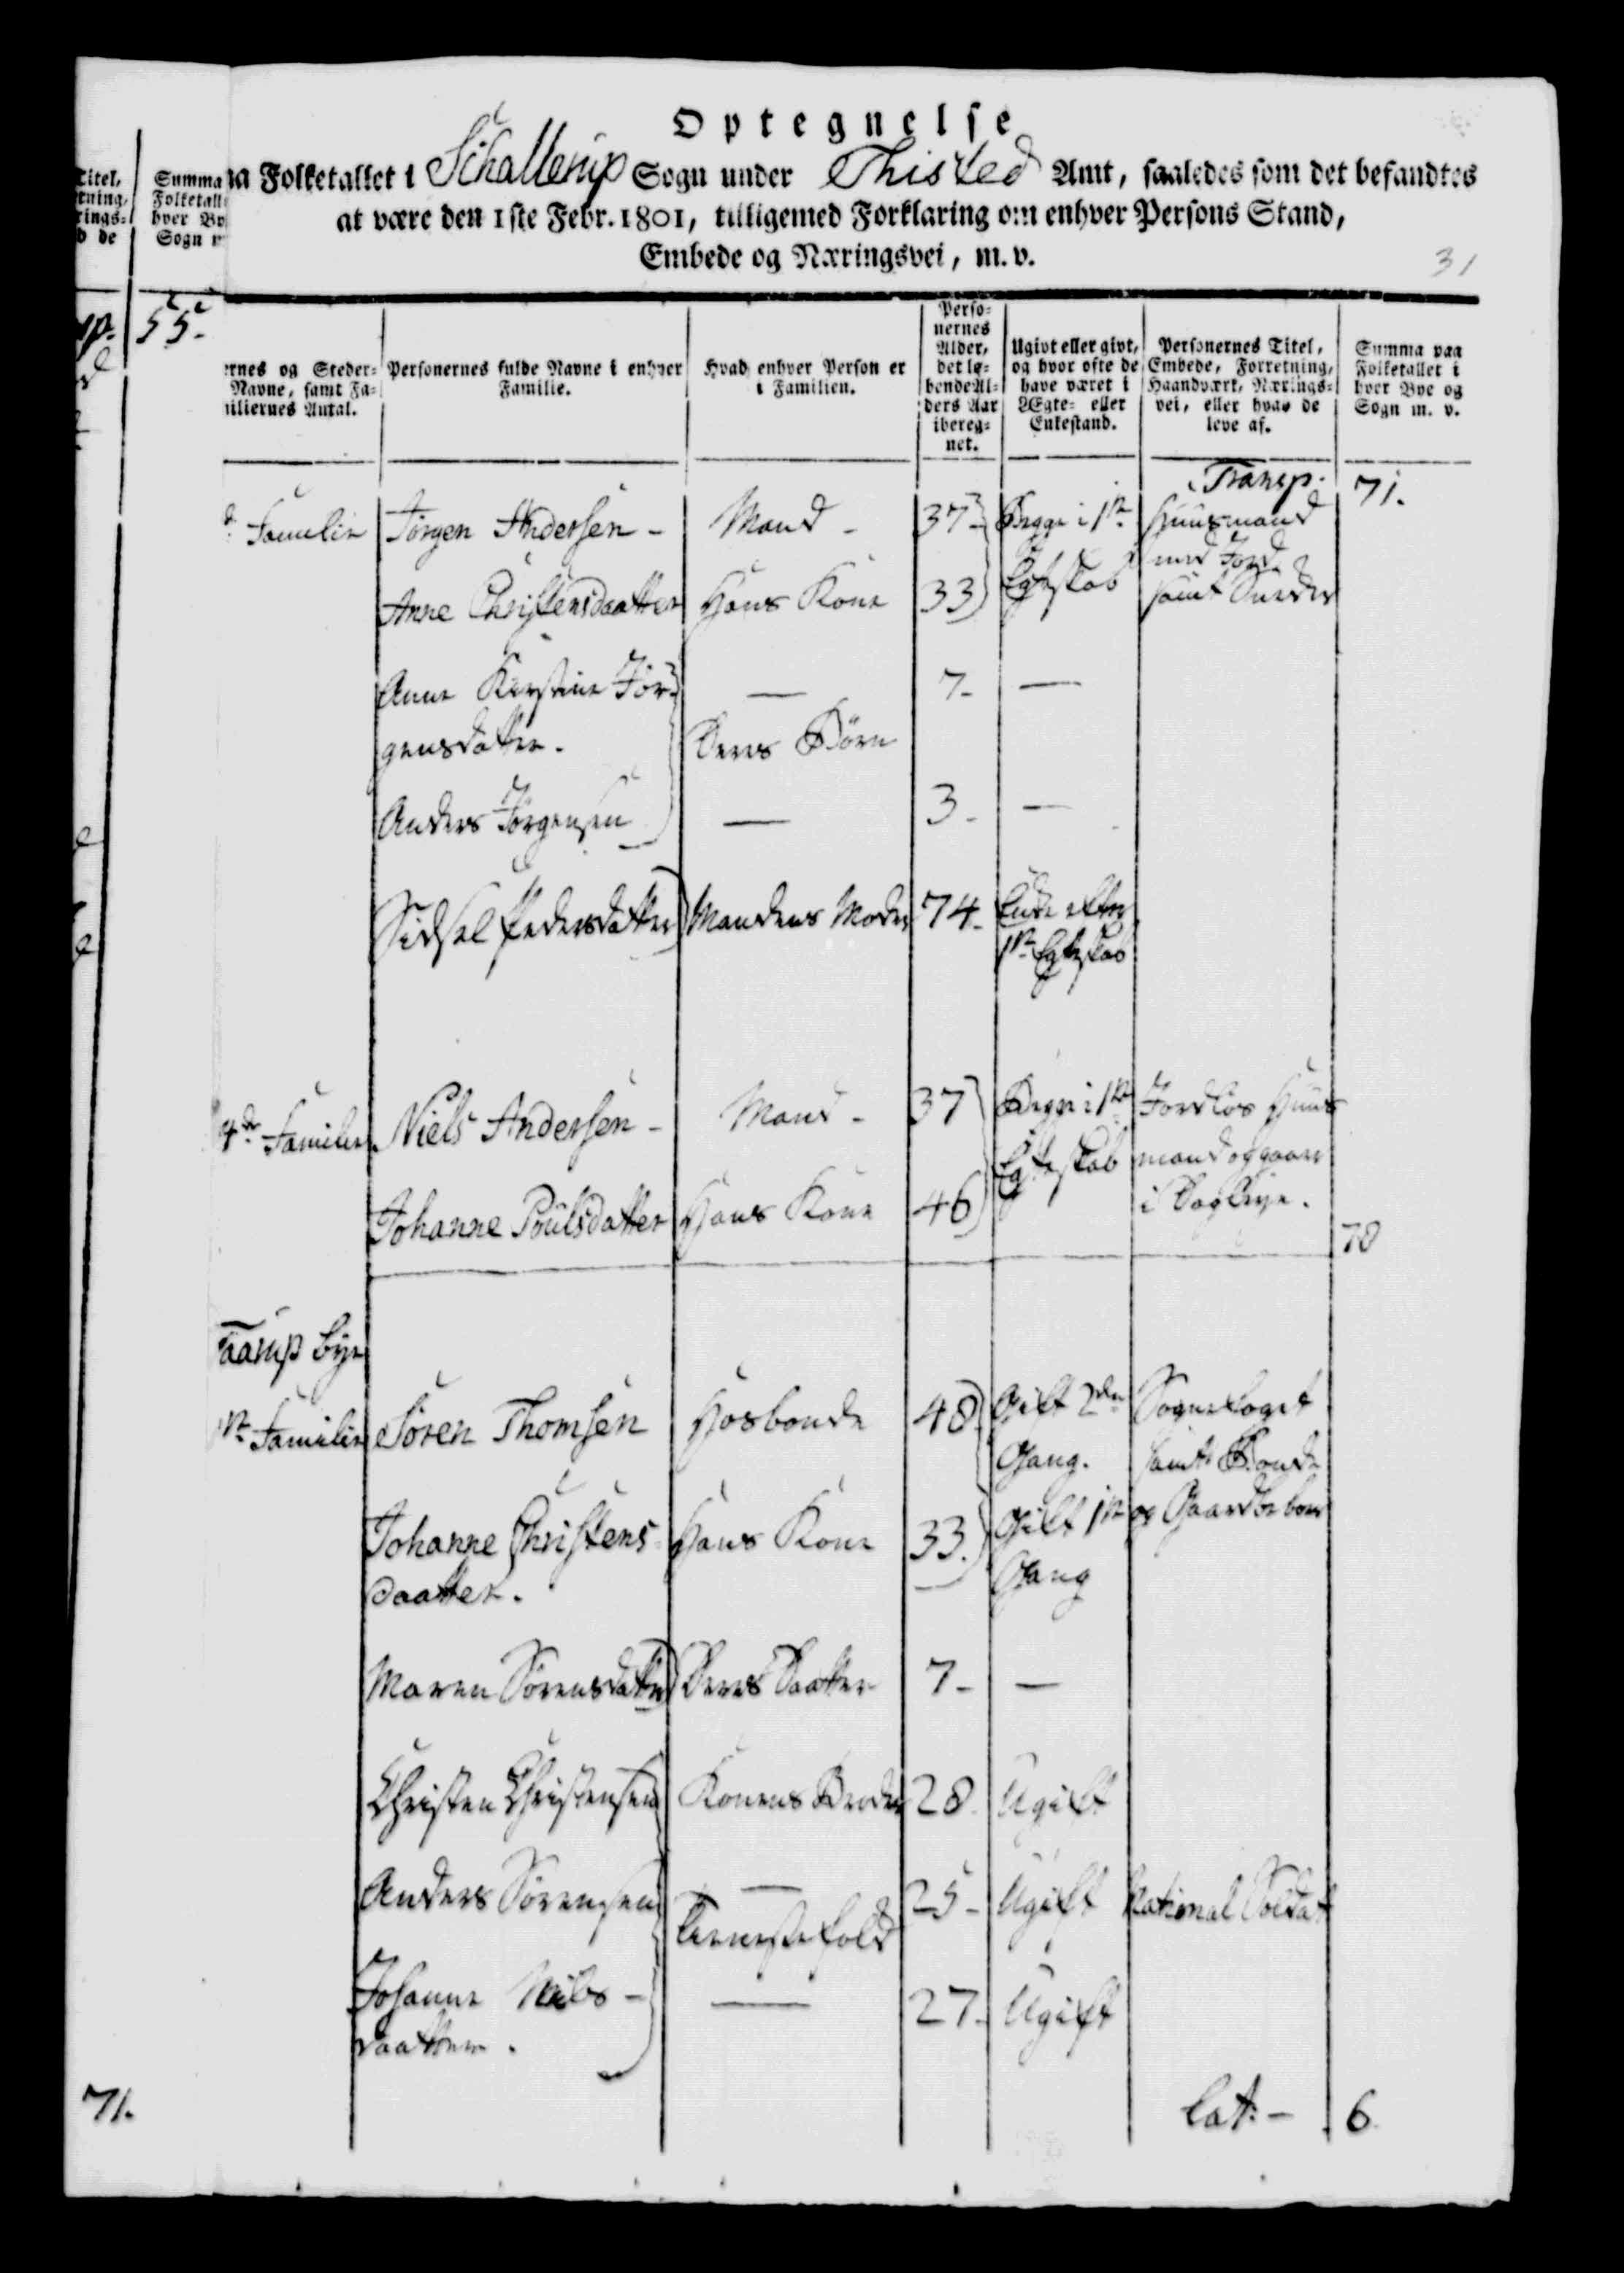 Optegnelse
na Folketallet i Schallerup Sogn under Thisted Amt, saaledes som det befandtes
at være den 1ste Febr. 1801, tilligemed Forklaring om enhver Persons Stand,
Embede og Næringsvei, m. v.
31
Titel,
tning,
rings=
d de
Summa
Folketall
hver By
Sogn m
55.
71.
ernes og Steder=
Navne, samt Fa=
miliernes Antal.
Personernes fulde Navne i enhver
Familie.
Hvad enhver Person er
i Familien.
Perso=
nernes
Alder,
det lø=
bende Al=
ders Aar
ibereg=
net.
Ugivt eller givt,
og hvor ofte de
have været i
Ægte= eller
Enkestand.
Personernes Titel,
Embede, Forretning,
Haandværk, Nærings=
vei, eller hvad de
leve af.
Summa paa
Folketallet i
hver Bye og
Sogn m. v.
Transp. 71.
Familie Jörgen Andersen - Mand - 37 Begge i 1te Huusmand
med Jord
Anne Christensdaatter Hans Kone 33 Egteskab samt Snedker
Anne Kirstine Jör- — 7- —
gensdatter. Deres Börn
Anders Jörgensen — 3- —
Sidsel Pedersdatter Mandens Moder 74- Enke efter
1te Egteskab
4de Familie Niels Andersen - Mand - 37 Begge i 1te Jordlös Huus
Egteskab mand og gaaer
Johanne Poulsdatter Hans Kone 46 i Dagleye.
78
Taarup Bye
1te Familie Sören Thomsen Hosbonde 48 Gift 2den Sognefoget
Gang. samt Bonde
Johanne Christens- Hans Kone 33. Gift 1te og Gaardbeboer
daatter. Gang
Maren Sörensdatter Deres Daatter 7- —
Christen Christensen Konens Broder 28. Ugift
Anders Sörensen — 25- Ugift National Soldat
Tienestefolk
Johanne Niels- — 27- Ugift
daatter.
Lat: - 6